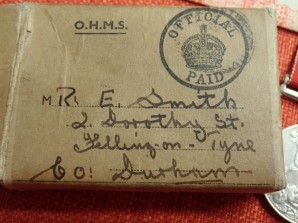 O.H.M.S.
OFFICIAL
PAID
M R. E. Smith
2. Dorothy St.
Felling-on-Tyne
Co: Durham